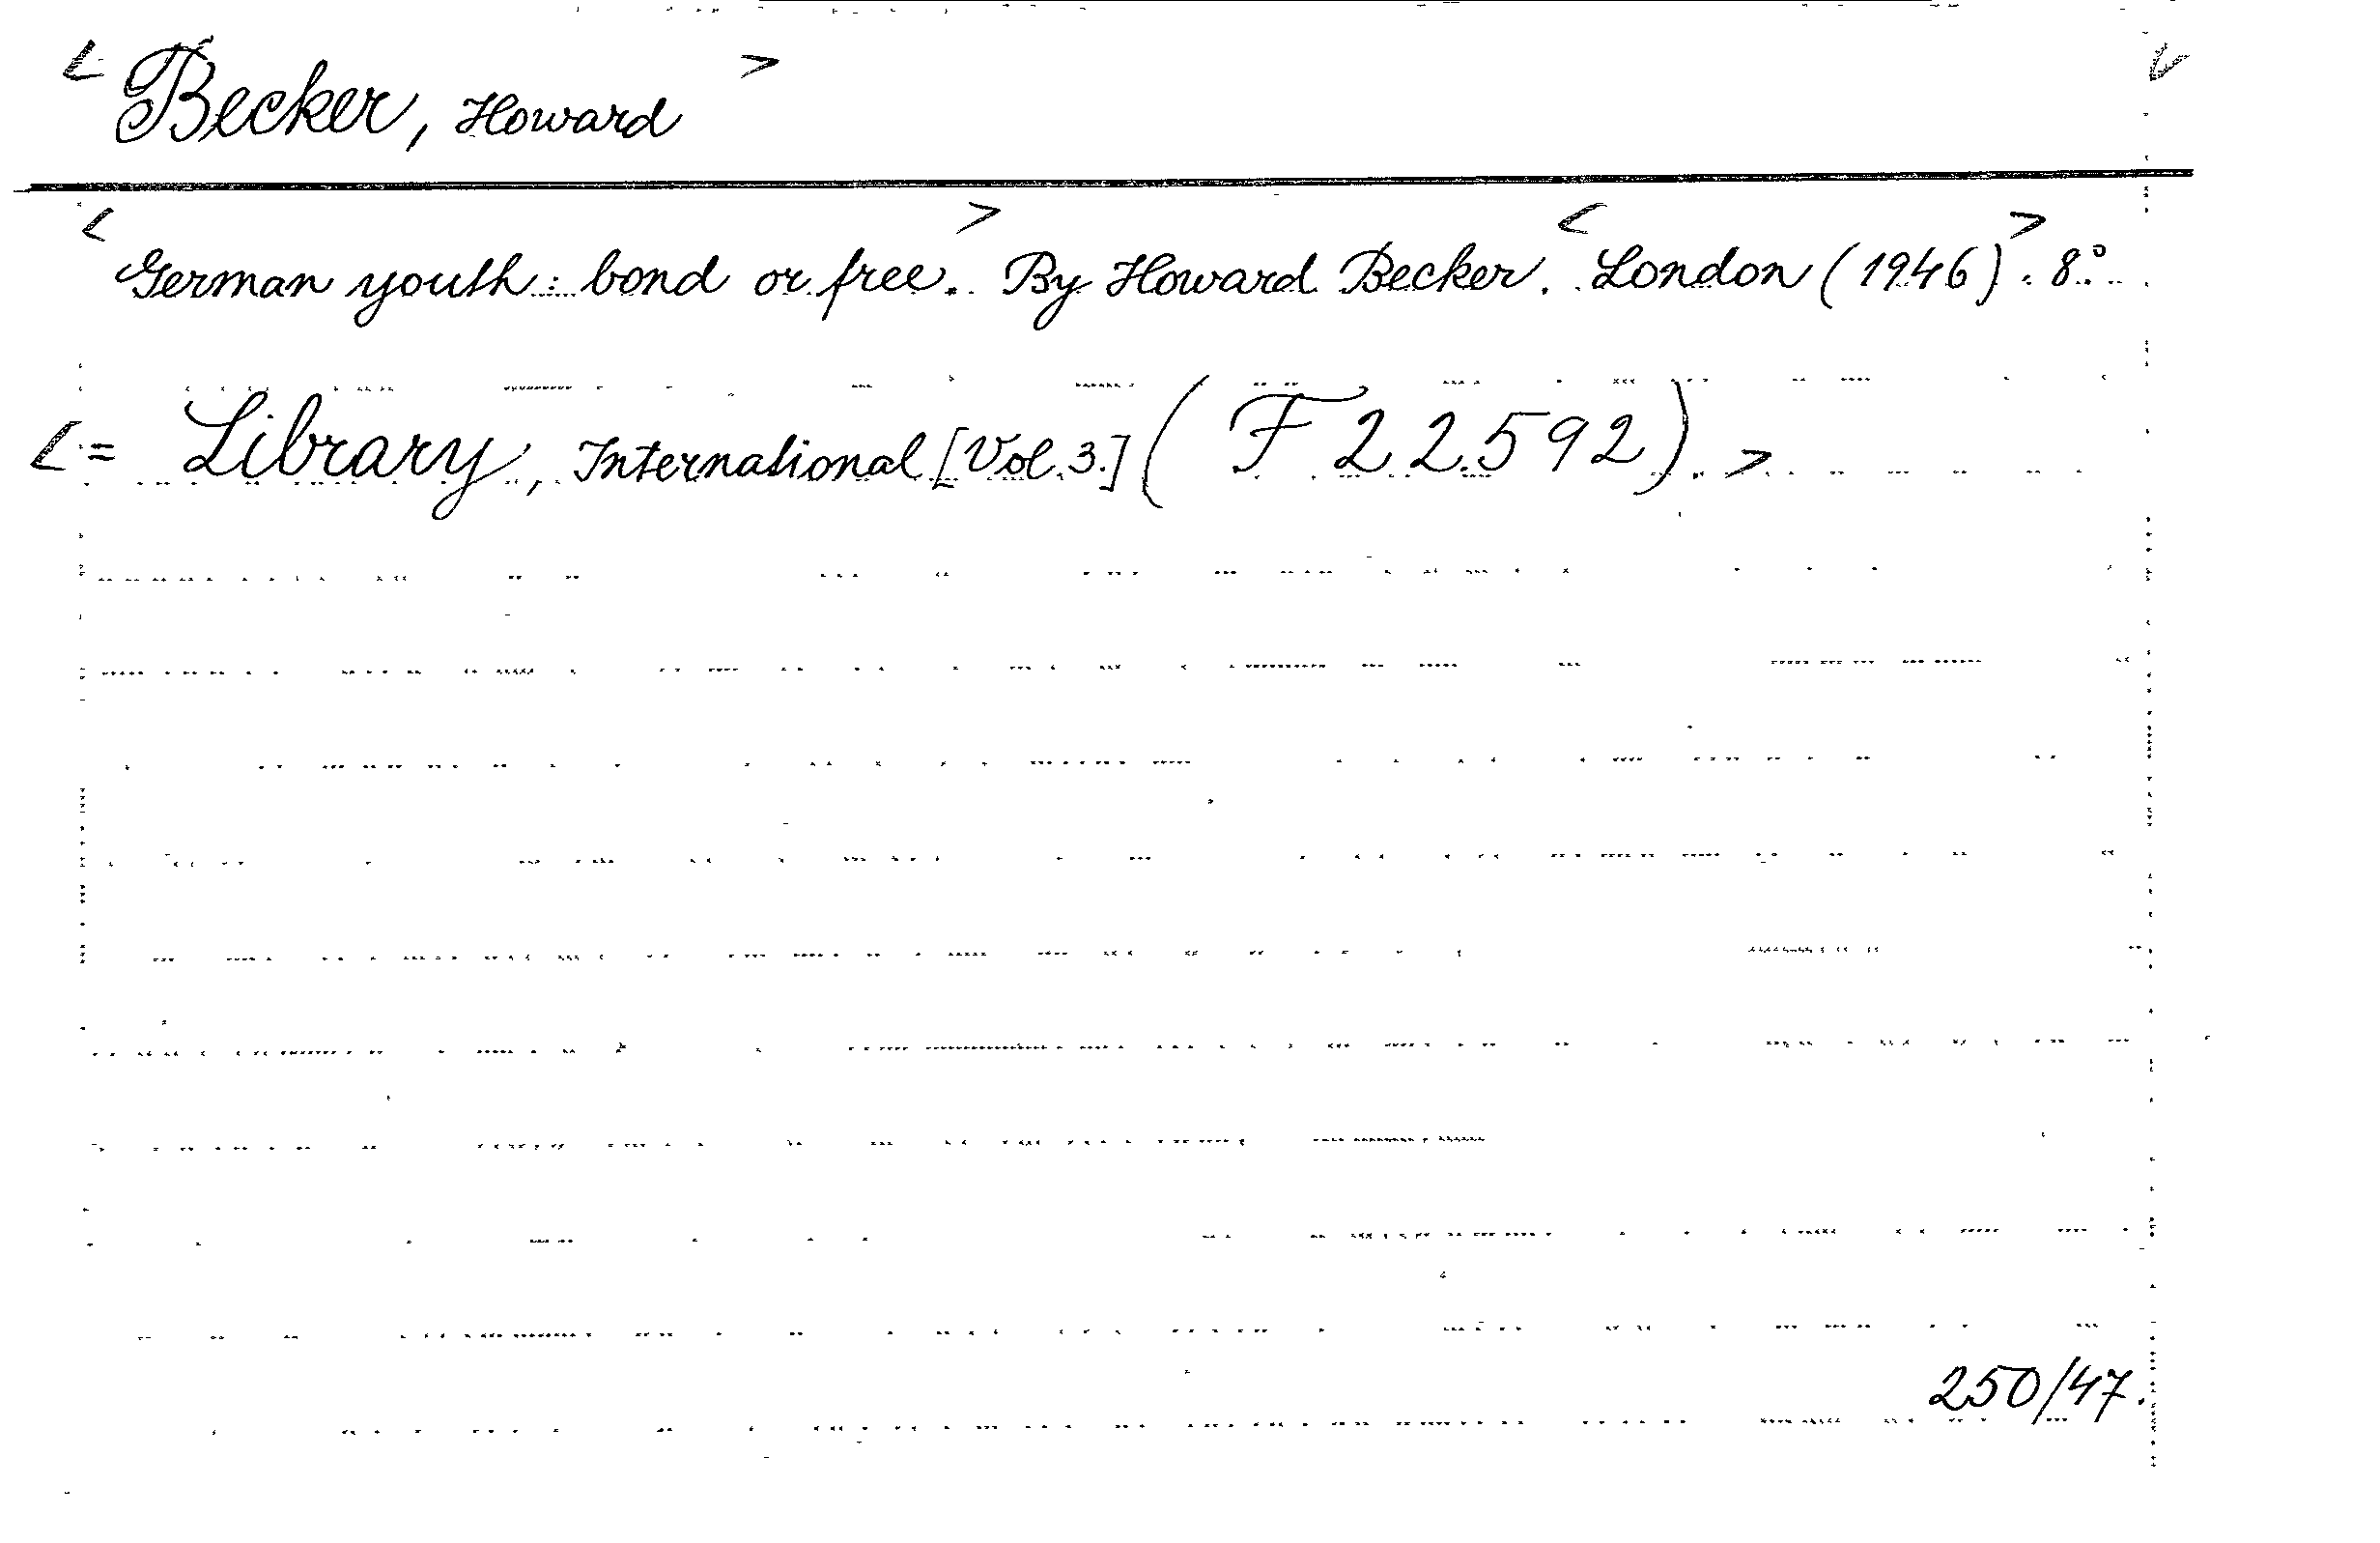 < Becker, Howard > ✓
< German youth: bond or free. > By Howard Becker. < London (1946) > . 8°.
< = Library, International [Vol. 3.] (F 22.592). >
250/47.